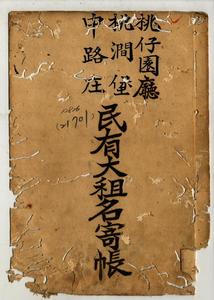 桃仔園廳
桃澗堡
中路庄
民有大租名寄帳
(21701)